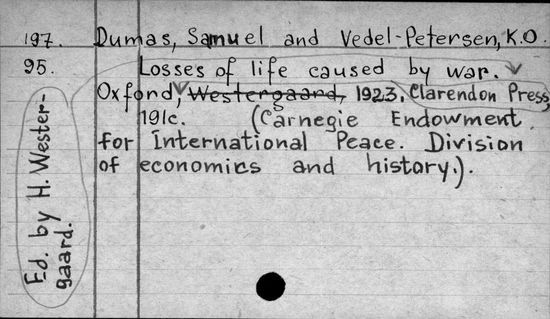 197. Dumas, Samuel and Vedel-Petersen, K.O.
95. Losses of life caused by war.
Oxford, Westergaard, 1923. Clarendon Press,
191c. (Carnegie Endowment
for International Peace. Division
of economics and history.).
Ed. by H. Wester-
gaard.